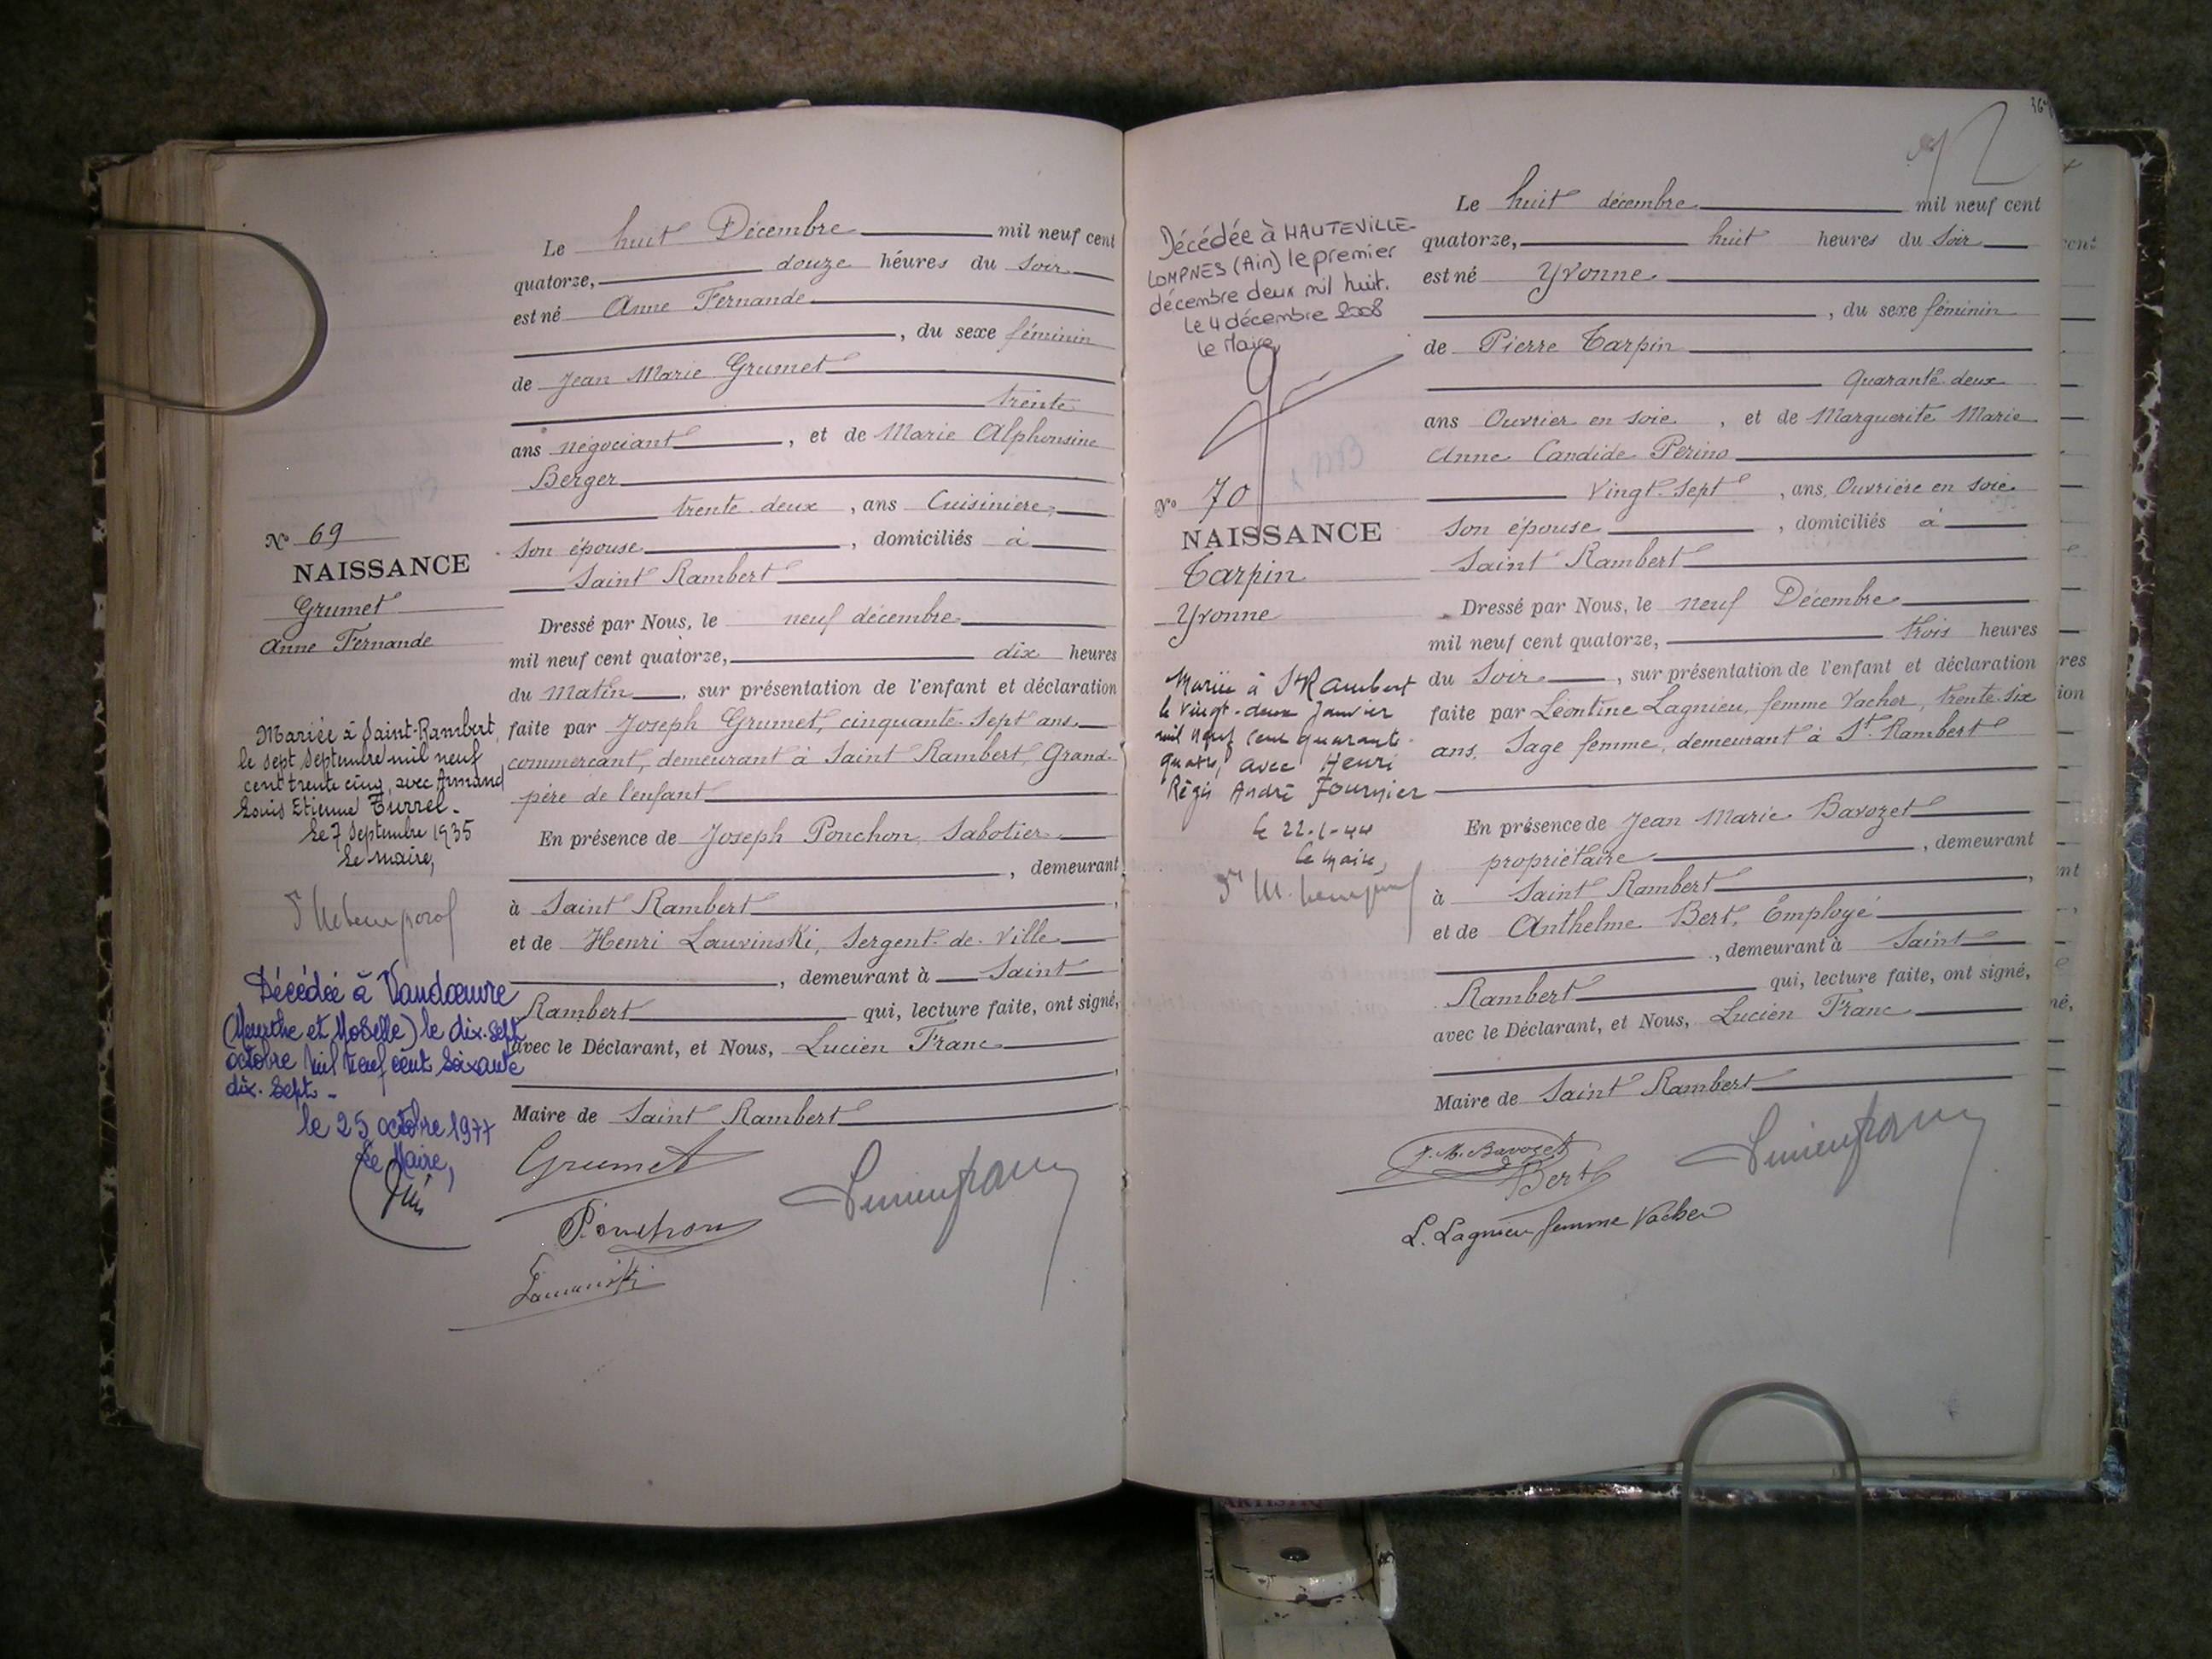 Le huit Décembre mil neuf cent
quatorze, douze heures du soir
est né Anne Fernande
, du sexe féminin
de Jean Marie Grumet
trente
ans négociant, et de Marie Alphonsine
Berger
trente deux, ans Cuisinière,
son épouse, domiciliés à
Saint Rambert
Dressé par Nous, le neuf décembre
mil neuf cent quatorze, dix heures
du Matin, sur présentation de l'enfant et déclaration
faite par Joseph Grumet, cinquante-sept ans
commercant, demeurant à Saint Rambert, Grand-
père de l'enfant
En présence de Joseph Ponchon, Sabotier
, demeurant
à Saint Rambert,
et de Henri Lauvinski, Sergent-de-Ville
, demeurant à Saint
Rambert qui, lecture faite, ont signé,
avec le Déclarant, et Nous, Lucien Franc
Maire de Saint Rambert
Grumet
Ponchon
No 69
NAISSANCE
Grumet
Anne Fernande
Mariée à Saint-Rambert,
le sept Septembre mil neuf
cent trente cinq, avec Armand
Louis Etienne Turrel.-
Le 7 Septembre 1935
Le maire,
Décédée à Vandœuvre
(Meurthe et Moselle) le dix-sept
octobre mil neuf cent soixante
dix-sept.-
le 25 octobre 1977
Le Maire,
Le huit décembre mil neuf cent
quatorze, huit heures du Soir
est né Yvonne
, du sexe féminin
de Pierre Tarpin
Quarante-deux
ans Ouvrier en soie, et de Marguerite Marie
Anne Candide Perino
Vingt-Sept, ans, Ouvrière en soie
son épouse, domiciliés à
Saint Rambert
Dressé par Nous, le neuf Décembre
mil neuf cent quatorze, trois heures
du Soir, sur présentation de l'enfant et déclaration
faite par Léontine Lagnieu, femme Vacher, trente-six
ans, Sage femme, demeurant à St. Rambert
En présence de Jean Marie Bavozet
propriétaire, demeurant
à Saint Rambert,
et de Anthelme Bert, Employé
, demeurant à Saint
Rambert qui, lecture faite, ont signé,
avec le Déclarant, et Nous, Lucien Franc
Maire de Saint Rambert
J. M. Bavozet
Bert
L. Lagnieu femme Vacher
Décédée à HAUTEVILLE-
LOMPNES (Ain) le premier
décembre deux mil huit.
Le 4 décembre 2008
le Maire
No 70
NAISSANCE
Tarpin
Yvonne
Mariée à St Rambert
le vingt-deux Janvier
mil neuf cent quarante
quatre, avec Henri
Régis André Fournier
le 22-1-44
Le Maire,